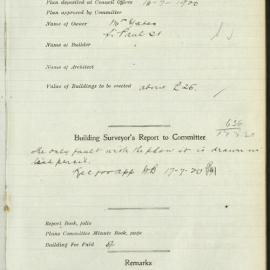 Plan deposited at Council Offices 16-7-1920
Plan approved by Committee
Name of Owner Mr Yates
St. Paul St
Name of Builder
Name of Architect
Value of Buildings to be erected above £25.
Building Surveyor's Report to Committee
The only fault with the plan it is drawn in
lead pencil.
17-7-20
Report Book, folio
Plans Committee Minute Book, page
Building Fee Paid
Remarks